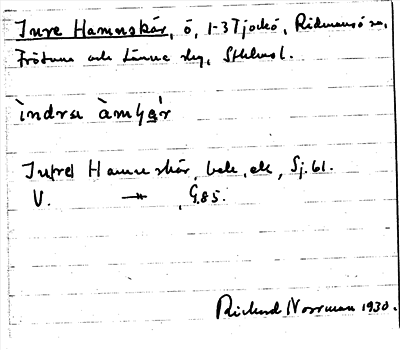 Inre Hamnskär, ö, 1-37 Tjockö, Rådmansö sn,
Frötuna och Länna slg, Sthlms l.
ìndrǝ àmʃǝ̀r
Inre Hamnskär, bebe, ek, Sj. 61.
V. —"— , G.85.
Richard Norrman 1930.